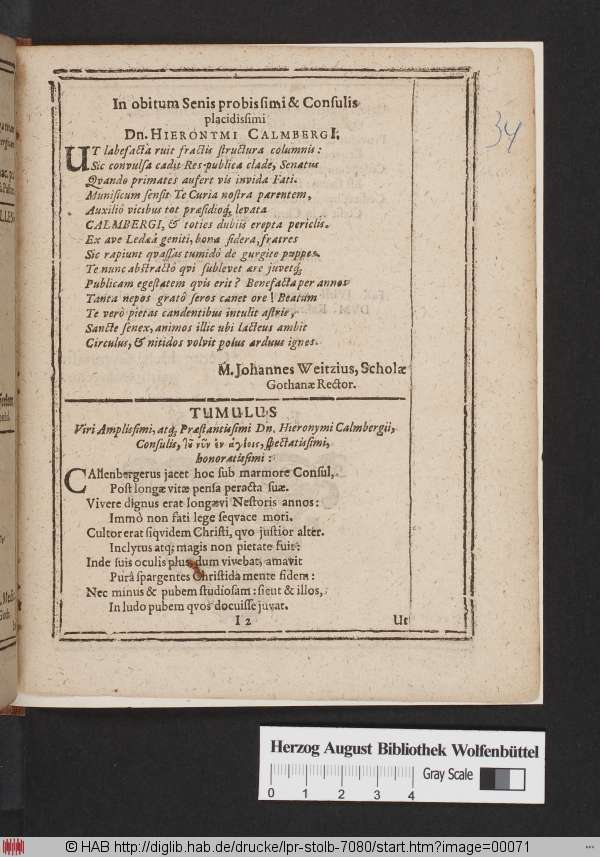 In obitum Senis probissimi & Consulis
placidissimi
Dn. HIERONYMI CALMBERGI.
UT labefacta ruit fractis structura columnis:
Sic convulsa cadit Res-publica clade, Senatus
Qvando primates aufert vis invida Fati.
Munificum sensit Te Curia nostra parentem,
Auxiliô vicibus tot præsidioq; levata
CALMBERGI, & toties dubiis erepta periclis.
Ex ave Ledæâ geniti, bona sidera, fratres
Sic rapiunt qvassas tumidô de gurgite puppes.
Te nunc abstractô qvi sublevet ære juvetq;
Publicam egestatem qvis erit? Benefacta per annos
Tanta nepos gratô seros canet ore! Beatum
Te verò pietas candentibus intulit astris,
Sancte senex, animos illic ubi lacteus ambit
Circulus, & nitidos volvit polus arduus ignes.
M. Johannes Weitzius, Scholæ
Gothanæ Rector.
TUMULUS
Viri Amplissimi, atq; Præstantissimi Dn. Hieronymi Calmbergii,
Consulis, τȣ̃ νῦν ἐν ἁγίοις, spectatissimi,
honoratissimi:
CAllenbergerus jacet hoc sub marmore Consul,
Post longæ vitæ pensa peracta suæ.
Vivere dignus erat longævi Nestoris annos:
Immò non fati lege seqvace mori.
Cultor erat siqvidem Christi, qvo justior alter.
Inclytus atq; magis non pietate fuit:
Inde suis oculis plus, dum vivebat, amavit
Purâ spargentes Christida mente fidem:
Nec minus & pubem studiosam: sicut & illos,
In ludo pubem qvos docuisse juvat.
I 2
Ut
34
Herzog August Bibliothek Wolfenbüttel
Gray Scale
0 1 2 3 4
© HAB http://diglib.hab.de/drucke/lpr-stolb-7080/start.htm?image=00071